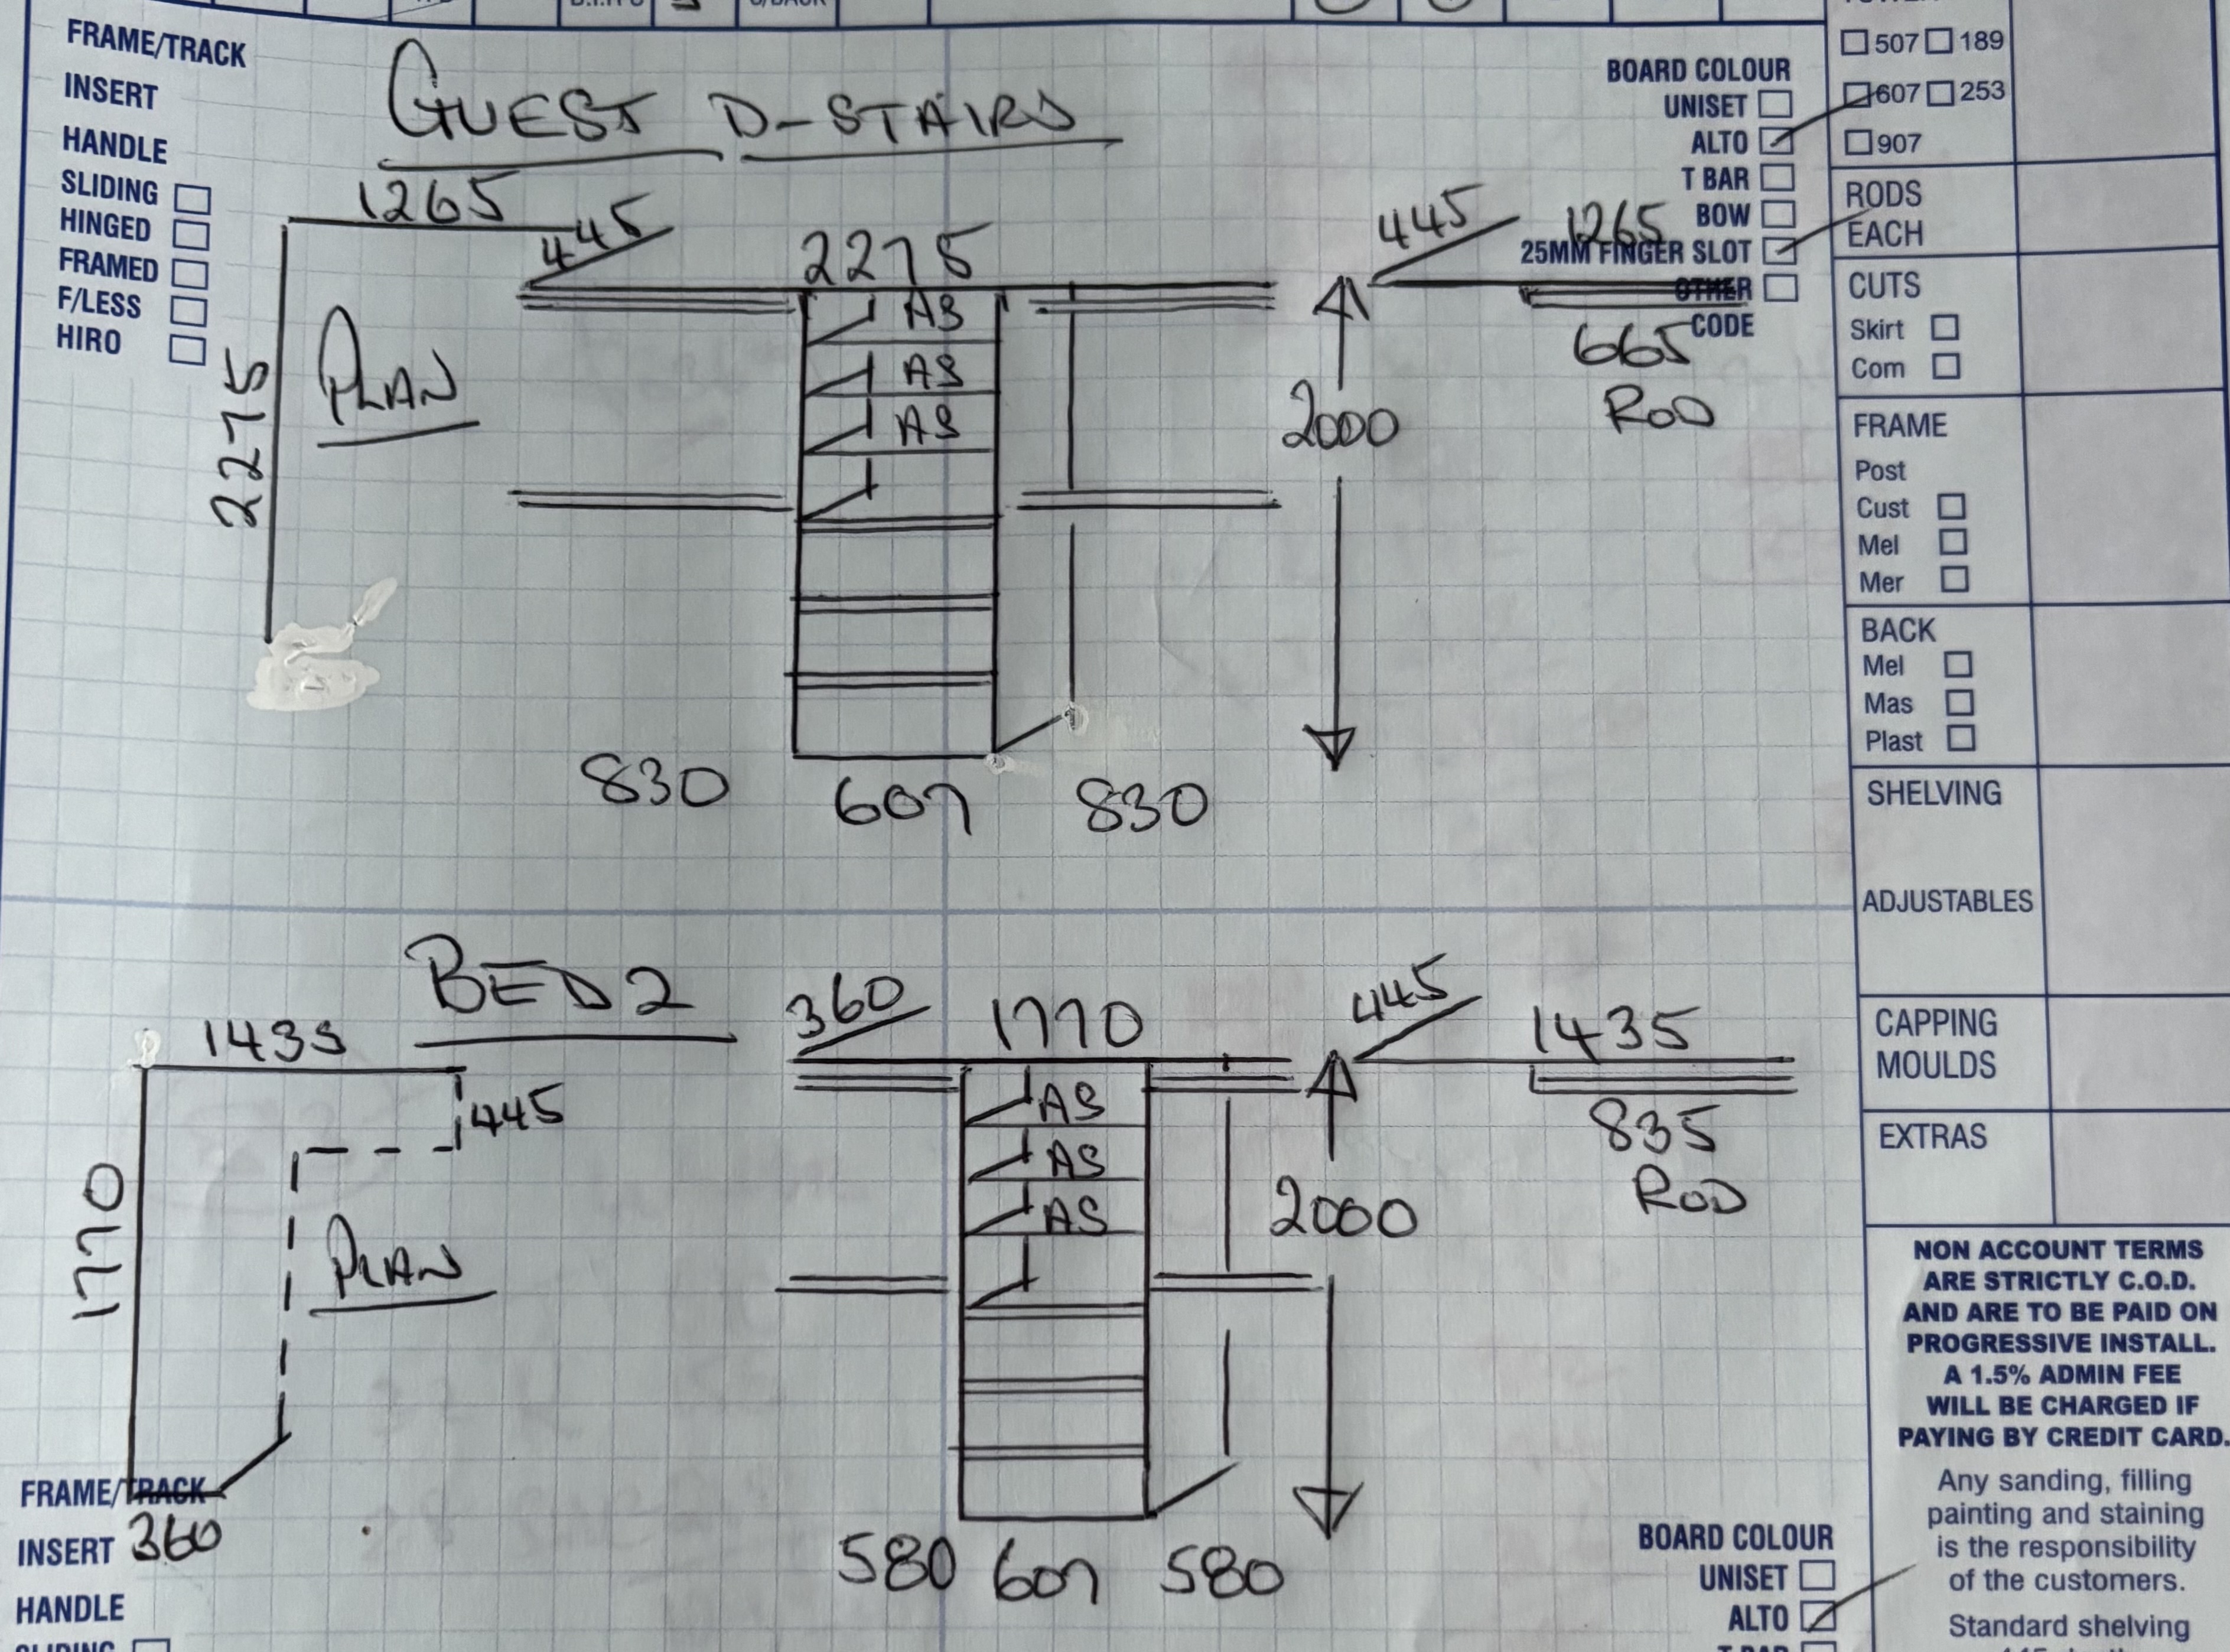 FRAME/TRACK
INSERT
HANDLE
SLIDING
HINGED
FRAMED
F/LESS
HIRO
GUEST D-STAIRS
1265
2275
PLAN
445
2275
AS
AS
AS
830
607
830
2000
445
1265
665
ROD
BOARD COLOUR
UNISET
ALTO
T BAR
BOW
25MM FINGER SLOT
OTHER
CODE
507 189
607 253
907
RODS
EACH
CUTS
Skirt
Com
FRAME
Post
Cust
Mel
Mer
BACK
Mel
Mas
Plast
SHELVING
ADJUSTABLES
CAPPING
MOULDS
EXTRAS
BED 2
1435
445
1770
PLAN
360
360
1770
AS
AS
AS
580 607 580
2000
445
1435
835
ROD
FRAME/TRACK
INSERT
HANDLE
SLIDING
BOARD COLOUR
UNISET
ALTO
T BAR
NON ACCOUNT TERMS
ARE STRICTLY C.O.D.
AND ARE TO BE PAID ON
PROGRESSIVE INSTALL.
A 1.5% ADMIN FEE
WILL BE CHARGED IF
PAYING BY CREDIT CARD.
Any sanding, filling
painting and staining
is the responsibility
of the customers.
Standard shelving